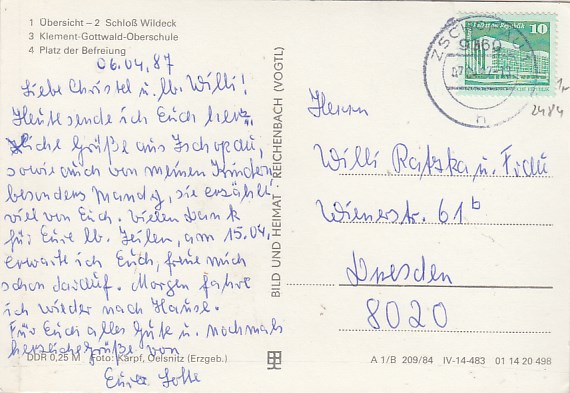 1 Übersicht – 2 Schloß Wildeck
3 Klement-Gottwald-Oberschule
4 Platz der Befreiung
06.04.87
Liebe Christel u. lb. Willi!
Heute sende ich Euch herz-
liche Grüße aus Zschopau,
sowie auch von meinen Kindern
besonders Mandy, sie erzählt
viel von Euch. Vielen Dank
für Eure lb. Zeilen, am 15.04.
erwarte ich Euch, freue mich
schon darauf. Morgen fahre
ich wieder nach Hause.
Für Euch alles Gute u. nochmals
herzliche Grüße von
Eure Lotte
DDR 0,25 M Foto: Karpf, Oelsnitz (Erzgeb.)
BILD UND HEIMAT · REICHENBACH (VOGTL)
ZSCHOPAU
9360
h
10
2484
Herrn
Willi Ratzka u. Frau
Wienerstr. 61 b
Dresden
8020
A 1/B 209/84 IV-14-483 01 14 20 498